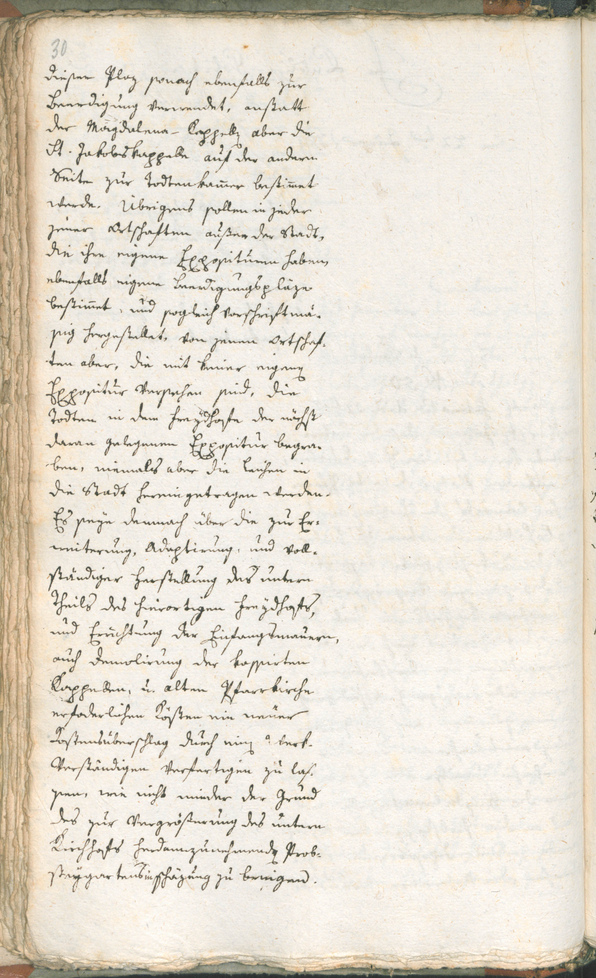 30
dieser Plaz sonach ebenfalls zur
Beerdigung verwendet, anstatt
der Magdalena-Kappelle aber die
St. Jakobskappelle auf der andern
Seite zur Todtenkam̄er bestim̄et
werde. Übrigens sollen in jeder
jener Ortschaften außer der Stadt,
die ihre eigene Expositurn haben,
ebenfalls eigene Beerdigungspläze
bestim̄et, und sogleich vorschriftmä-
ßig hergestellet, von jenen Ortschaf-
ten aber, die mit keiner eigenen
Expositur versehen sind, die
Todten in dem Freydhofe der nächst
daran gelegenen Expositur begra-
ben, niemals aber die Leichen in
die Stadt hereingetragen werden.
Es seye demnach über die zur Er-
weiterung, Adaptirung, und voll-
ständiger Herstellung des untern
Theils des hierortigen Freydhofs,
und Errichtung der Einfangsmauern,
auch Demolirung der kassirten
Kappellen, u. alten Pfarrkirche
erforderlichen Kösten ein neuer
Kostensüberschlag durch
verständigen verfertigen zu las-
sen, wie nicht minder der Grund
des zur Vergrößerung des untern
Kirchhofs herdannzunehmenden Prob-
steygartens in Schäzung zu bringen.